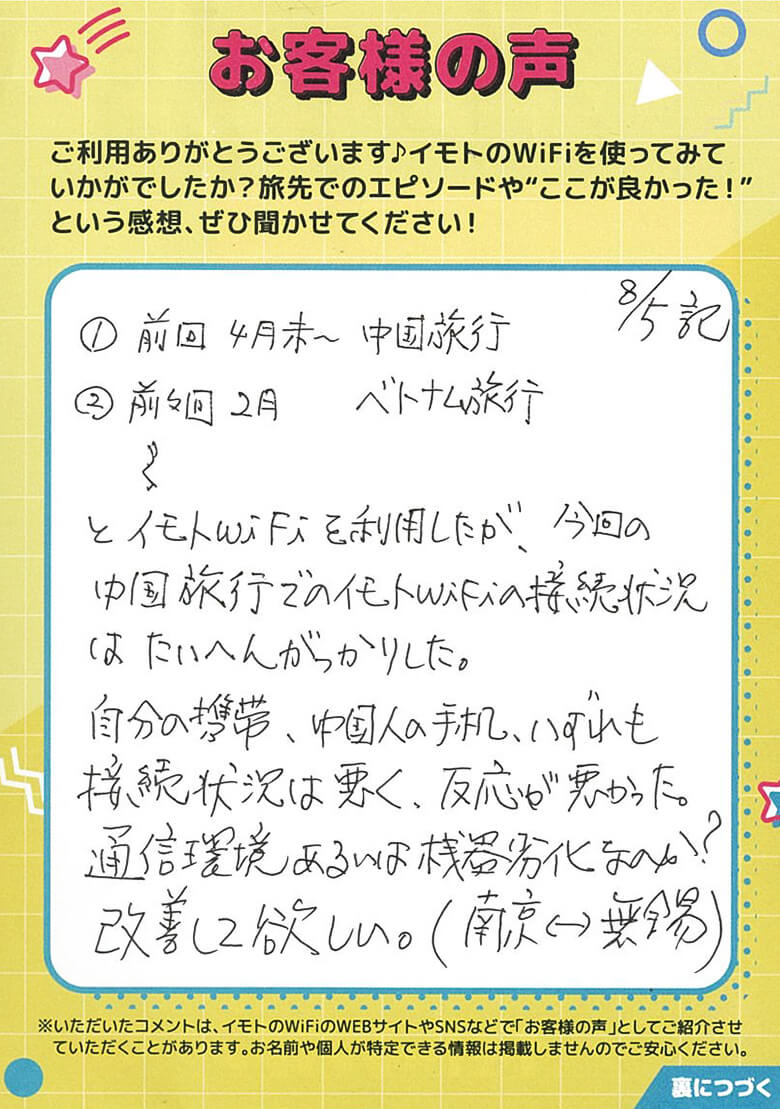 お客様の声
ご利用ありがとうございます♪イモトのWiFiを使ってみて
いかがでしたか？旅先でのエピソードや“ここが良かった！”
という感想、ぜひ聞かせてください！
8/5記
① 前回 4月末～ 中国旅行
② 前々回 2月 ベトナム旅行
とイモトWiFiを利用したが、今回の
中国旅行でのイモトWiFiの接続状況
はたいへんがっかりした。
自分の携帯、中国人の手机、いずれも
接続状況は悪く、反応が悪かった。
通信環境あるいは桟器劣化なのか？
改善して欲しい。(南京↔無錫)
※いただいたコメントは、イモトのWiFiのWEBサイトやSNSなどで「お客様の声」としてご紹介させ
ていただくことがあります。お名前や個人が特定できる情報は掲載しませんのでご安心ください。
裏につづく